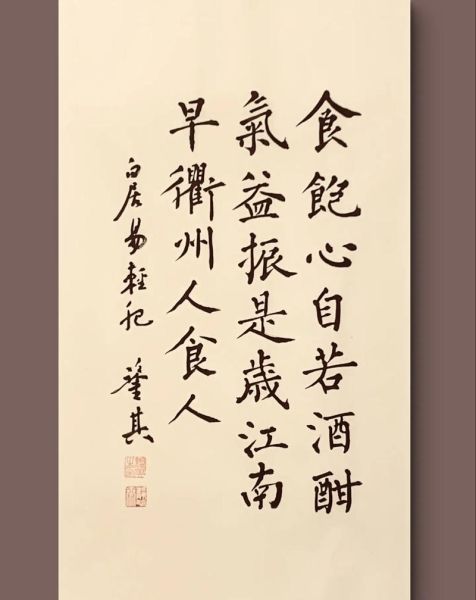 食飽心自若酒酣
氣益振是歲江南
早衢州人食人
白居易輕肥